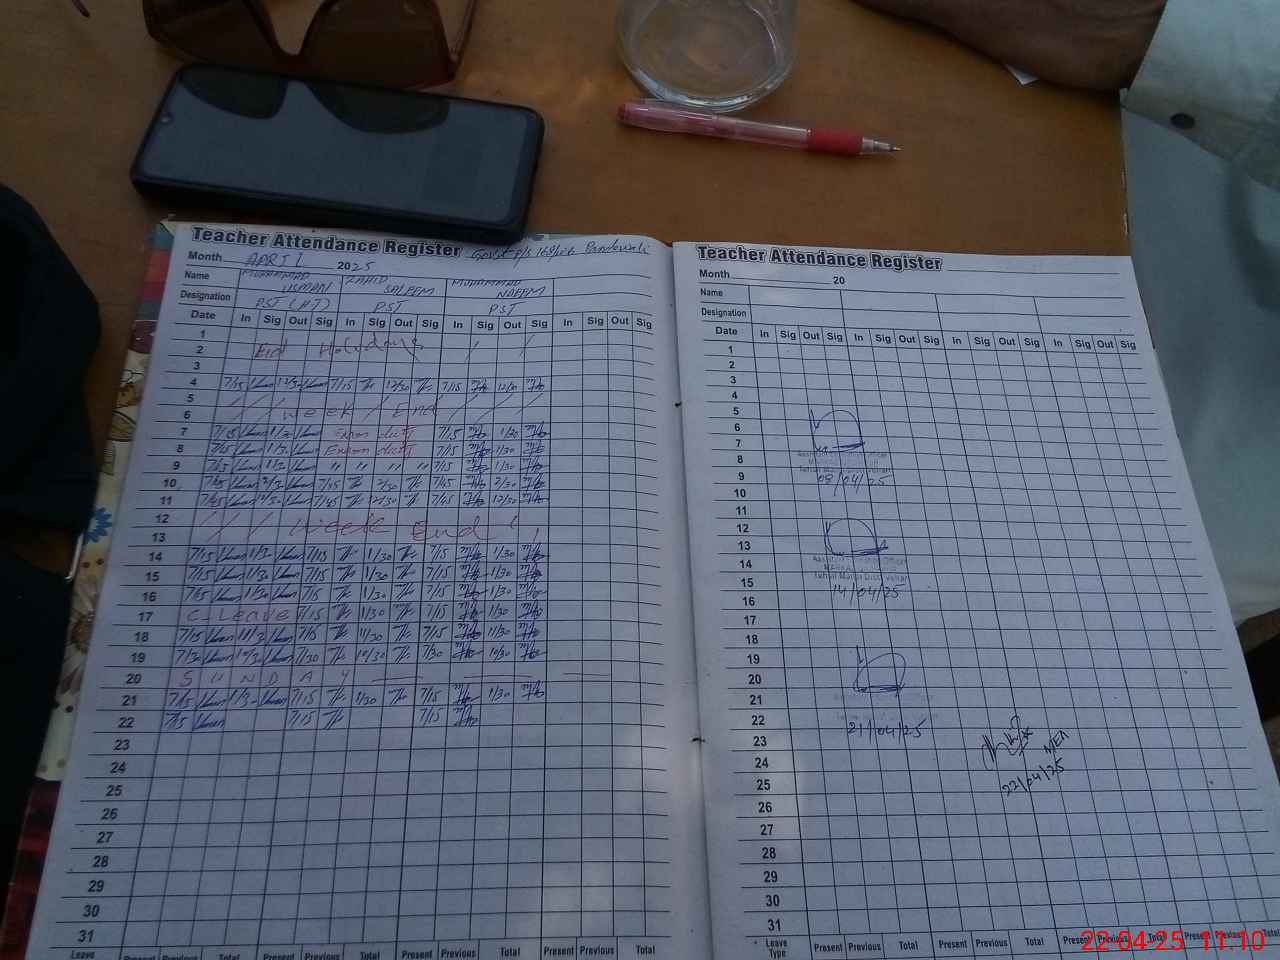 Teacher Attendance Register Govt P/S
Month APRIL 2025
Name MUHAMMAD USMAN ZAHID SALEEM MUHAMMAD NAEEM
Designation PST (HT) PST PST
Date In Sig Out Sig In Sig Out Sig In Sig Out Sig In Sig Out Sig
1
2 Eid Holydays
3
4 7/15 12/30 7/15 12/30 7/15 12/30
5
6 week End
7 7/15 1/30 Exam duty 7/15 1/30
8 7/15 1/30 Exam duty 7/15 1/30
9 7/15 1/30 " " " " 7/15 1/30
10 7/45 2/30 7/45 2/30 7/45 2/30
11 7/45 12/30 7/45 12/30 7/45 12/30
12
13 week End
14 7/15 1/30 7/15 1/30 7/15 1/30
15 7/15 1/30 7/15 1/30 7/15 1/30
16 7/15 1/30 7/15 1/30 7/15 1/30
17 C-Leave 7/15 1/30 7/15 1/30
18 7/15 11/30 7/15 11/30 7/15 11/30
19 7/30 10/30 7/30 10/30 7/30 10/30
20 S U N D A Y
21 7/15 1/30 7/15 1/30 7/15 1/30
22 7/15 7/15 7/15
23
24
25
26
27
28
29
30
31
Leave Present Previous Total Present Previous Total Present Previous Total Present Previous Total
Teacher Attendance Register
Month 20
Name
Designation
Date In Sig Out Sig In Sig Out Sig In Sig Out Sig In Sig Out Sig
1
2
3
4
5
6
7
8
9 08/04/25
10
11
12
13
14
15 Tehsil Mailsi Distt Vehari
16 14/04/25
17
18
19
20
21
22
23 21/04/25
24 MEA
25 22/04/25
26
27
28
29
30
31
Leave Type Present Previous Total Present Previous Total Present Previous Total Present Previous Total
22-04-25 11:10